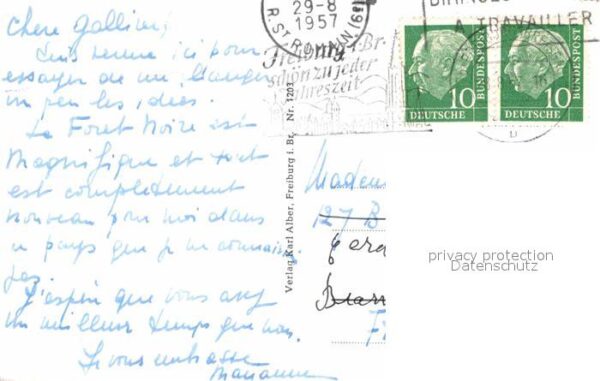 Chere Gallinu
Suis venue ici pour
essayer de me changer
un peu les idees.
La Foret Noire est
Magnifique et tout
est completement
nouveau pour moi dans
un pays que je ne connais
pas.
J'espère que vous avez
un meilleur temps que nous.
Je vous embrasse
Marianne
29-8
1957
R. ST R
Freiburg i. Br.
schön zu jeder
Jahreszeit
A TRAVAILLER
10
DEUTSCHE
BUNDESPOST
10
DEUTSCHE
BUNDESPOST
Verlag Karl Alber, Freiburg i. Br. Nr. 1203
Madem
127 B
privacy protection
Datenschutz